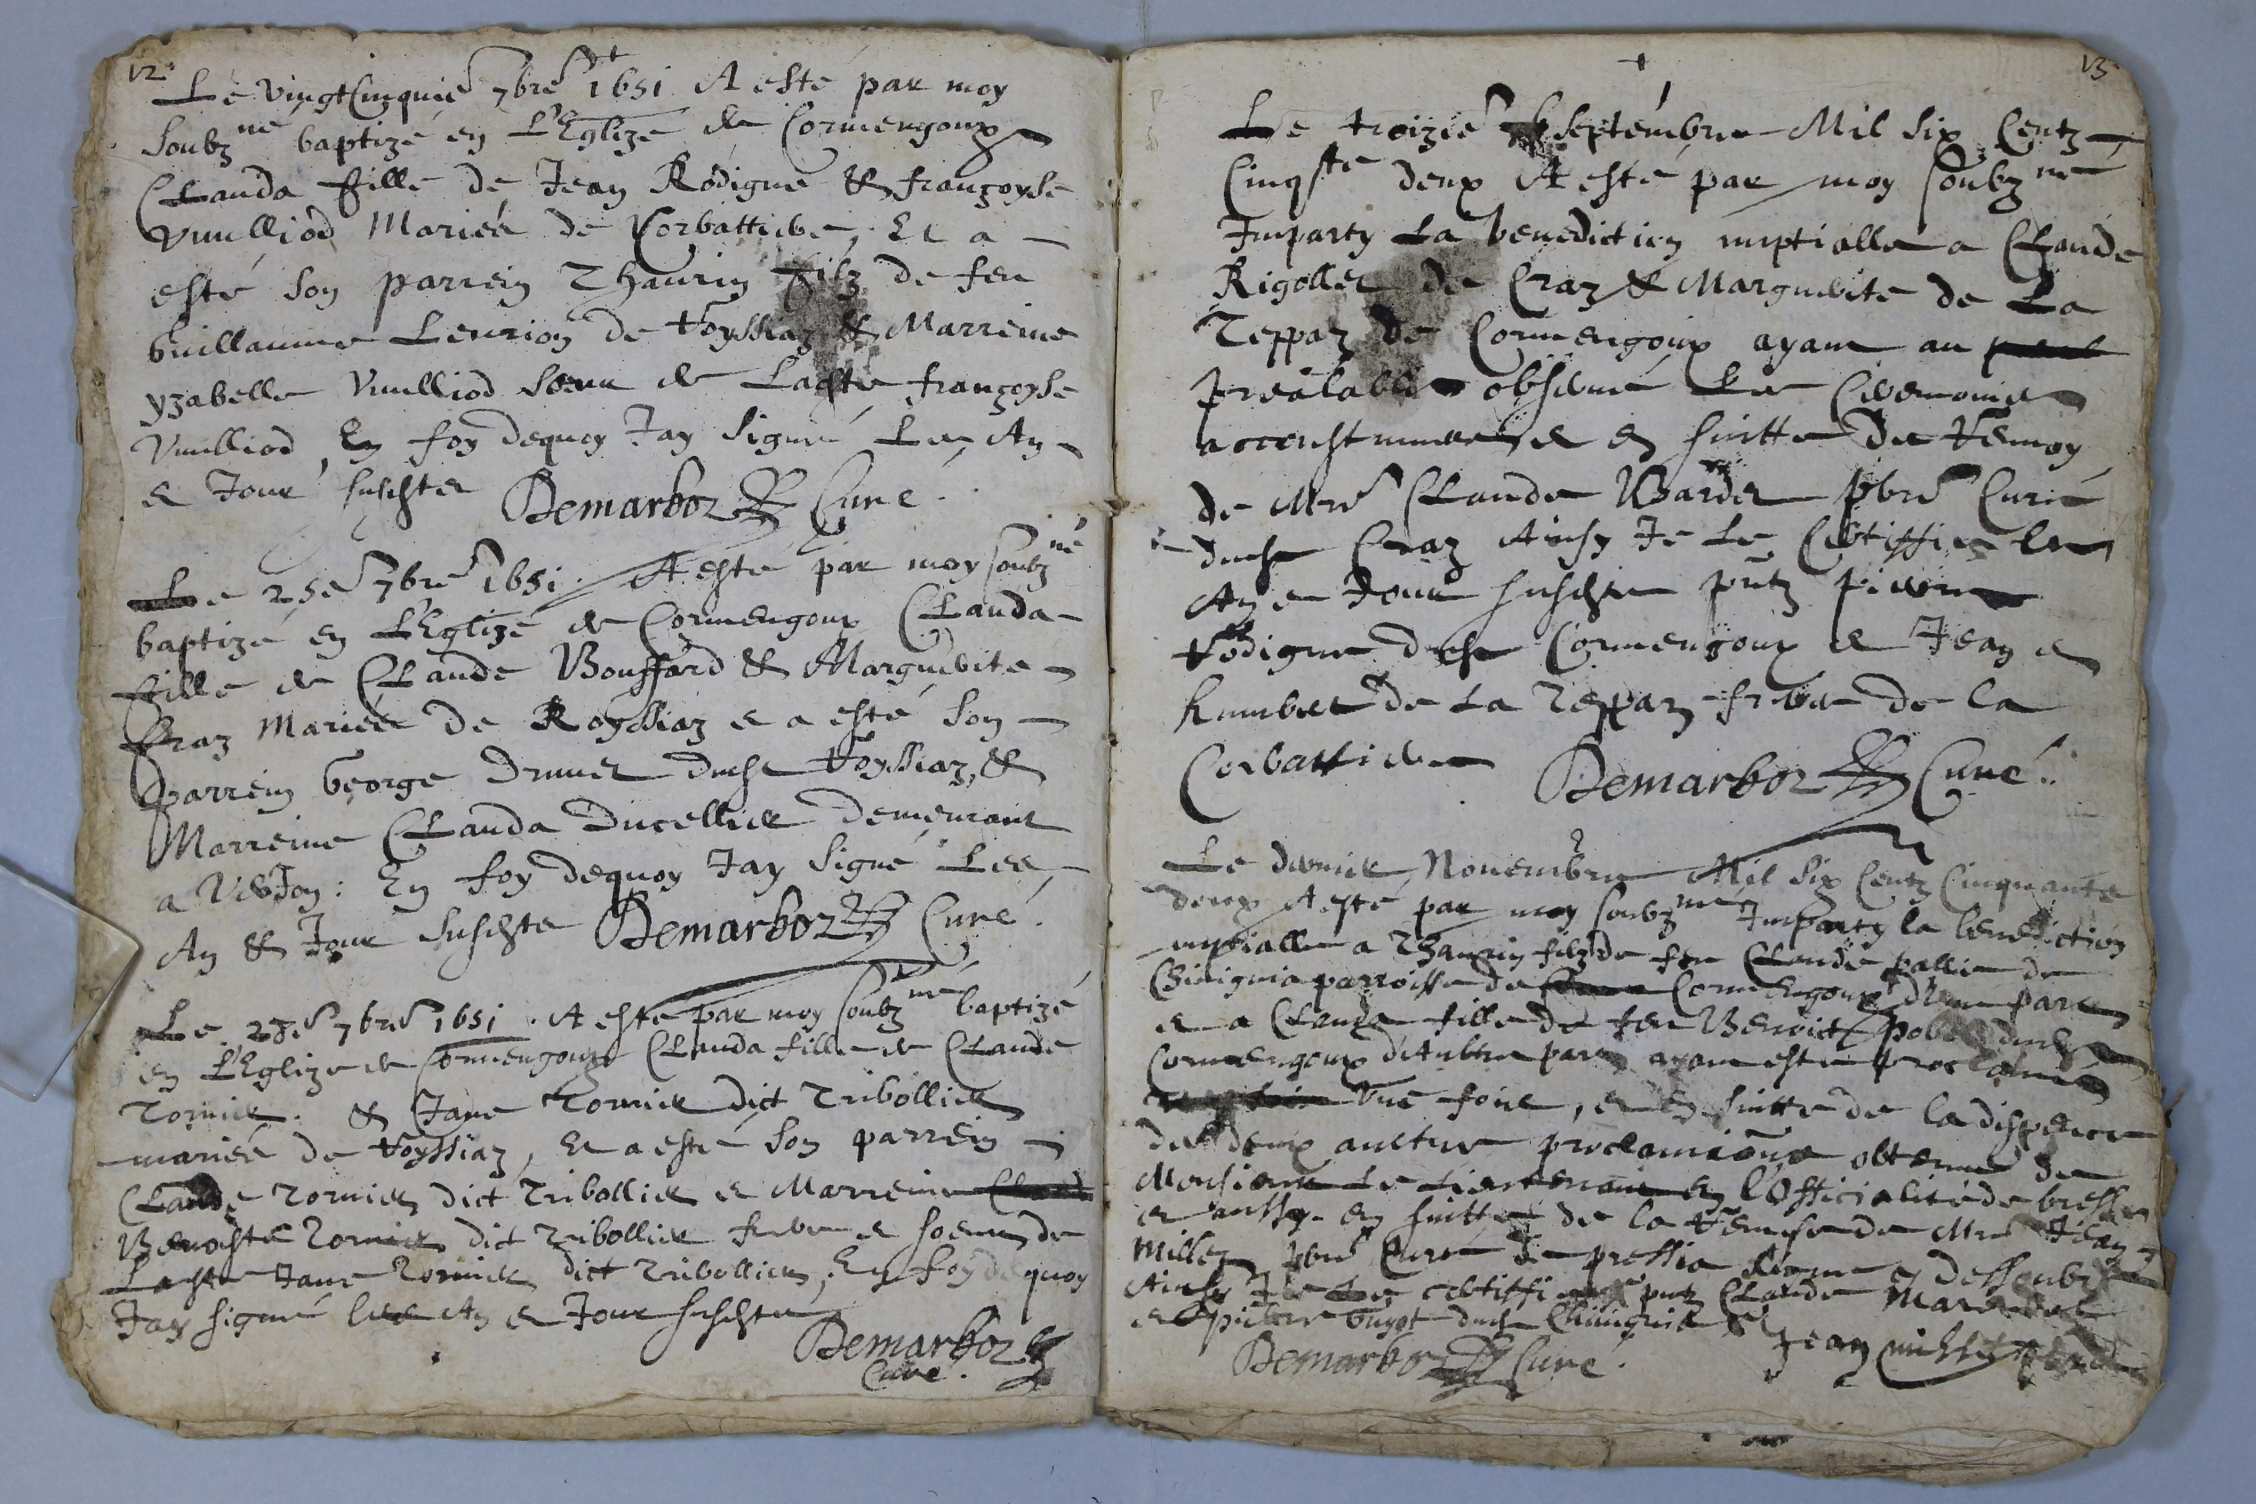 12.
Le vingtCinquie 7bre 1651 A esté par moy
soubzné baptizé en L'Eglize de Cormengoux
CLauda fille de Jean Rodigue & françoyse
Vuilliod Mariés de Corbattiere, Et a
esté son parrein Thaurin filz de feu
Guillaume Leurion de Voyssiaz & Marreine
yzabelle Vuilliod soeur de Ladte françoyse
Vuilliod, En foy dequoy Jay Signé Les An
& Jour susdits Demarboz Curé.
Le 25e 7bre 1651. A esté par moy soubzné
baptizé en L'Eglize de Cormengoux CLauda
fille de CLaude Bouffard & Marguerite
fraz Mariés de Royssiaz & a esté son
parrein George Druuet dudt Voyssiaz, &
Marreine CLauda Ducellier demeurant
a Verjon: En foy dequoy Jay Signé Les
An & Jour Susdits Demarboz Curé.
Le 27e 7bre 1651. A esté par moy soubzné baptizé
en L'Eglize de Cormengoux CLauda fille de CLaude
Tornier. & Jane Tornier dict Tribollier
mariés de Voyssiaz, Et a esté son parrein
CLaude Tornier dict Tribollier & Marreine Claud
Benoiste Tornier dict Tribollier frere & soeur de
Ladte Jane Tornier dict Tribollier, En foy dequoy
Jay signé les An & Jour susdits
Demarboz
Curé.
13
Le troizie septembre Mil six Centz
Cinqte deux A esté par moy soubzné
Imparty La benediction nuptialle a CLaude
Rigollet de Craz & Marguerite de La
Teppaz de Cormengoux ayant au
prealable obserué Les Ceremonies
accoustumees & en suitte du Renuoy
de Mre CLaude Bardet pbre Curé
dudt Craz Ainsy Je Le Certiffie les
An & Jour susdits pntz pierre
Rodigue dudt Cormengoux & Jean &
humbert de La Teppaz freres de la
Corbattiere Demarboz Curé.
Le dernier Nouembre Mil Six Centz Cinquante
deux A esté par moy soubzné Imparty la benediction
nuptialle a Thaurin filz de feu CLaude pallie de
Chiuignia parroisse de Cormengoux d'Une part
& a CLauda fille de feu Benoist pobel dudt
Cormengoux d'Aultre part ayant esté proclamés
Vne fois, & en suitte de la dispence
de deux aultres proclamaõns obtenue de
Monsieur Le Lieutenant en l'Officialité de bresse
& aussy en suitte de la Remise de Mre Jean
Millet pbre Curé de pressia signe en dessoubz
Ainsy Je Le certiffie pntz CLaude Mareschal
& pierre Guyot dudt Chiuignia
Demarboz Curé. Jean millet